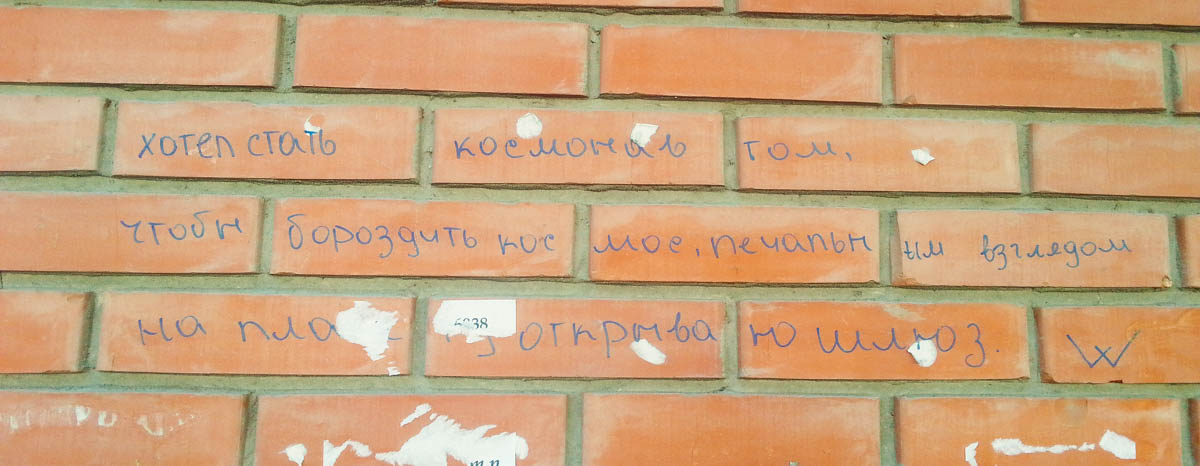 хотел стать космонавтом,
чтобы бороздить космос, печальным взглядом
на открываю шлюз. W